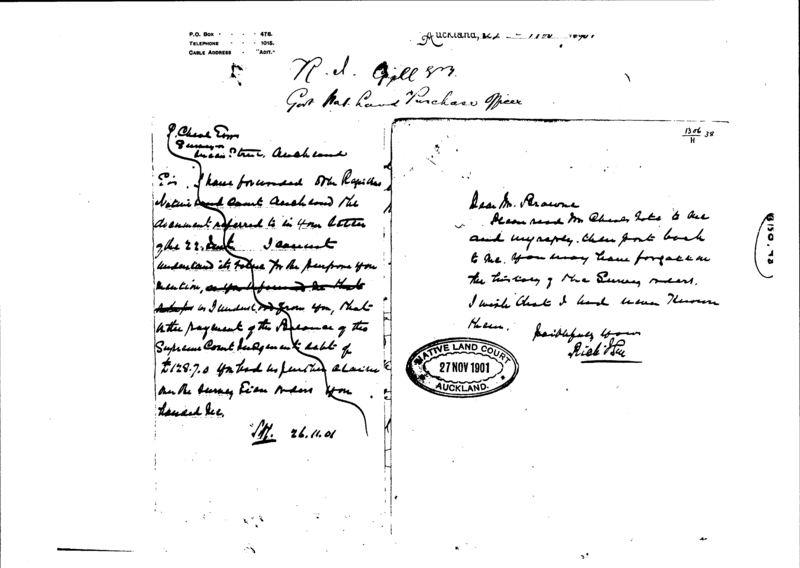 P.O. Box - - - 478.
Telephone - - - 1015.
Cable Address - "Adit."
Auckland,
R. J. Gill Esq.
Govt Nat. Land Purchase Officer
P. Cheal Esqr
Surveyor
Street, Auckland
Sir, I have forwarded to the Registrar
Native Land Court Auckland the
document referred to in your letter
of the 22. I cannot
understand its value for the purpose you
mention,
as I understood from you, that
on the payment of the balance of the
Supreme Court Judgement debt of
£128.7.0 you had no further claim
on the Survey Lien orders you
handed me.
26.11.01
1306/H 38
Dear Mr. Browne
Please read Mr Cheal's note to me
and my reply, then post back
to me. You may have forgotten
the history of the Survey orders.
I wish that I had never known
them.
Faithfully yours
NATIVE LAND COURT
27 NOV 1901
AUCKLAND.